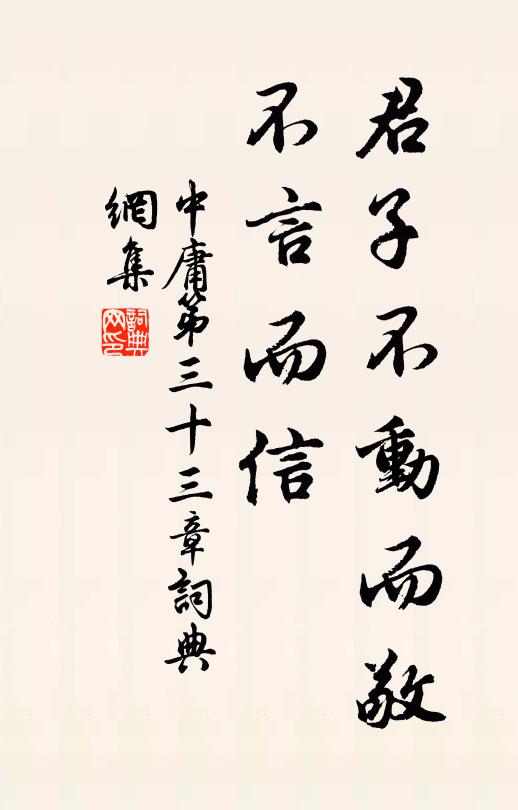 君子不動而敬
不言而信
中庸第三十三章詞典
網集
詞典
网印